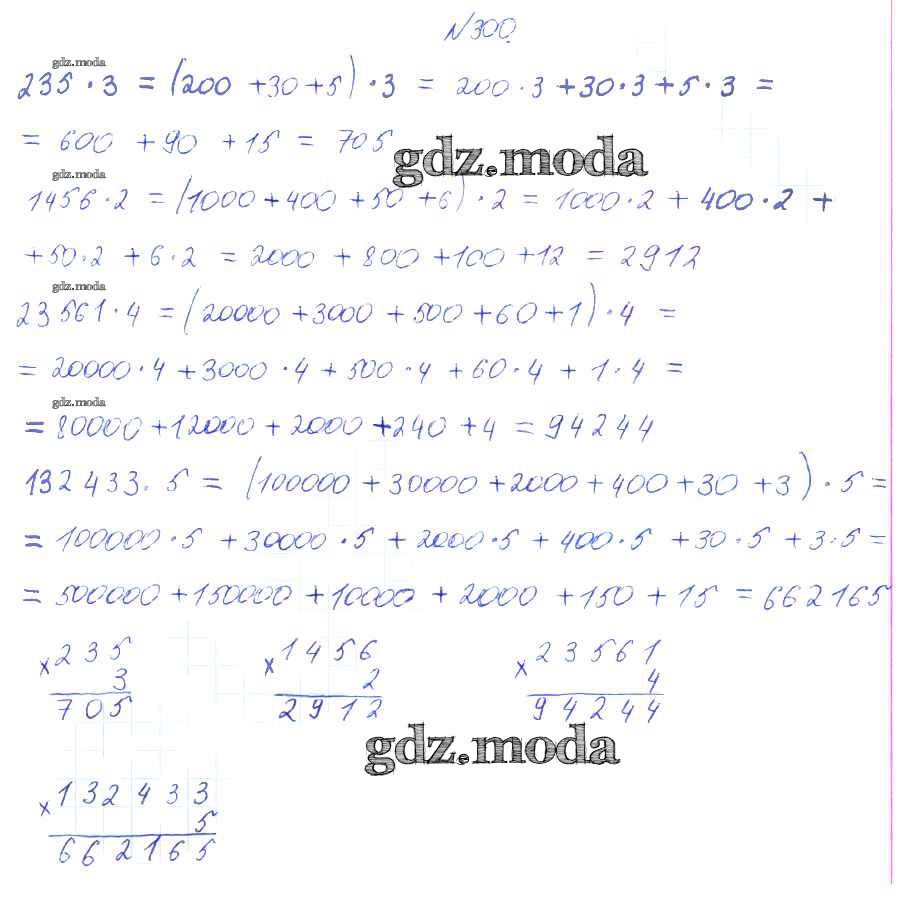 №300
gdz.moda
235 · 3 = (200 + 30 + 5) · 3 = 200 · 3 + 30 · 3 + 5 · 3 =
= 600 + 90 + 15 = 705
gdz.moda
gdz.moda
1456 · 2 = (1000 + 400 + 50 + 6) · 2 = 1000 · 2 + 400 · 2 +
+ 50 · 2 + 6 · 2 = 2000 + 800 + 100 + 12 = 2912
gdz.moda
23561 · 4 = (20000 + 3000 + 500 + 60 + 1) · 4 =
= 20000 · 4 + 3000 · 4 + 500 · 4 + 60 · 4 + 1 · 4 =
gdz.moda
= 80000 + 12000 + 2000 + 240 + 4 = 94244
132433 · 5 = (100000 + 30000 + 2000 + 400 + 30 + 3) · 5 =
= 100000 · 5 + 30000 · 5 + 2000 · 5 + 400 · 5 + 30 · 5 + 3 · 5 =
= 500000 + 150000 + 10000 + 2000 + 150 + 15 = 662165
× 235
3
705
× 1456
2
2912
× 23561
4
94244
gdz.moda
× 132433
5
662165